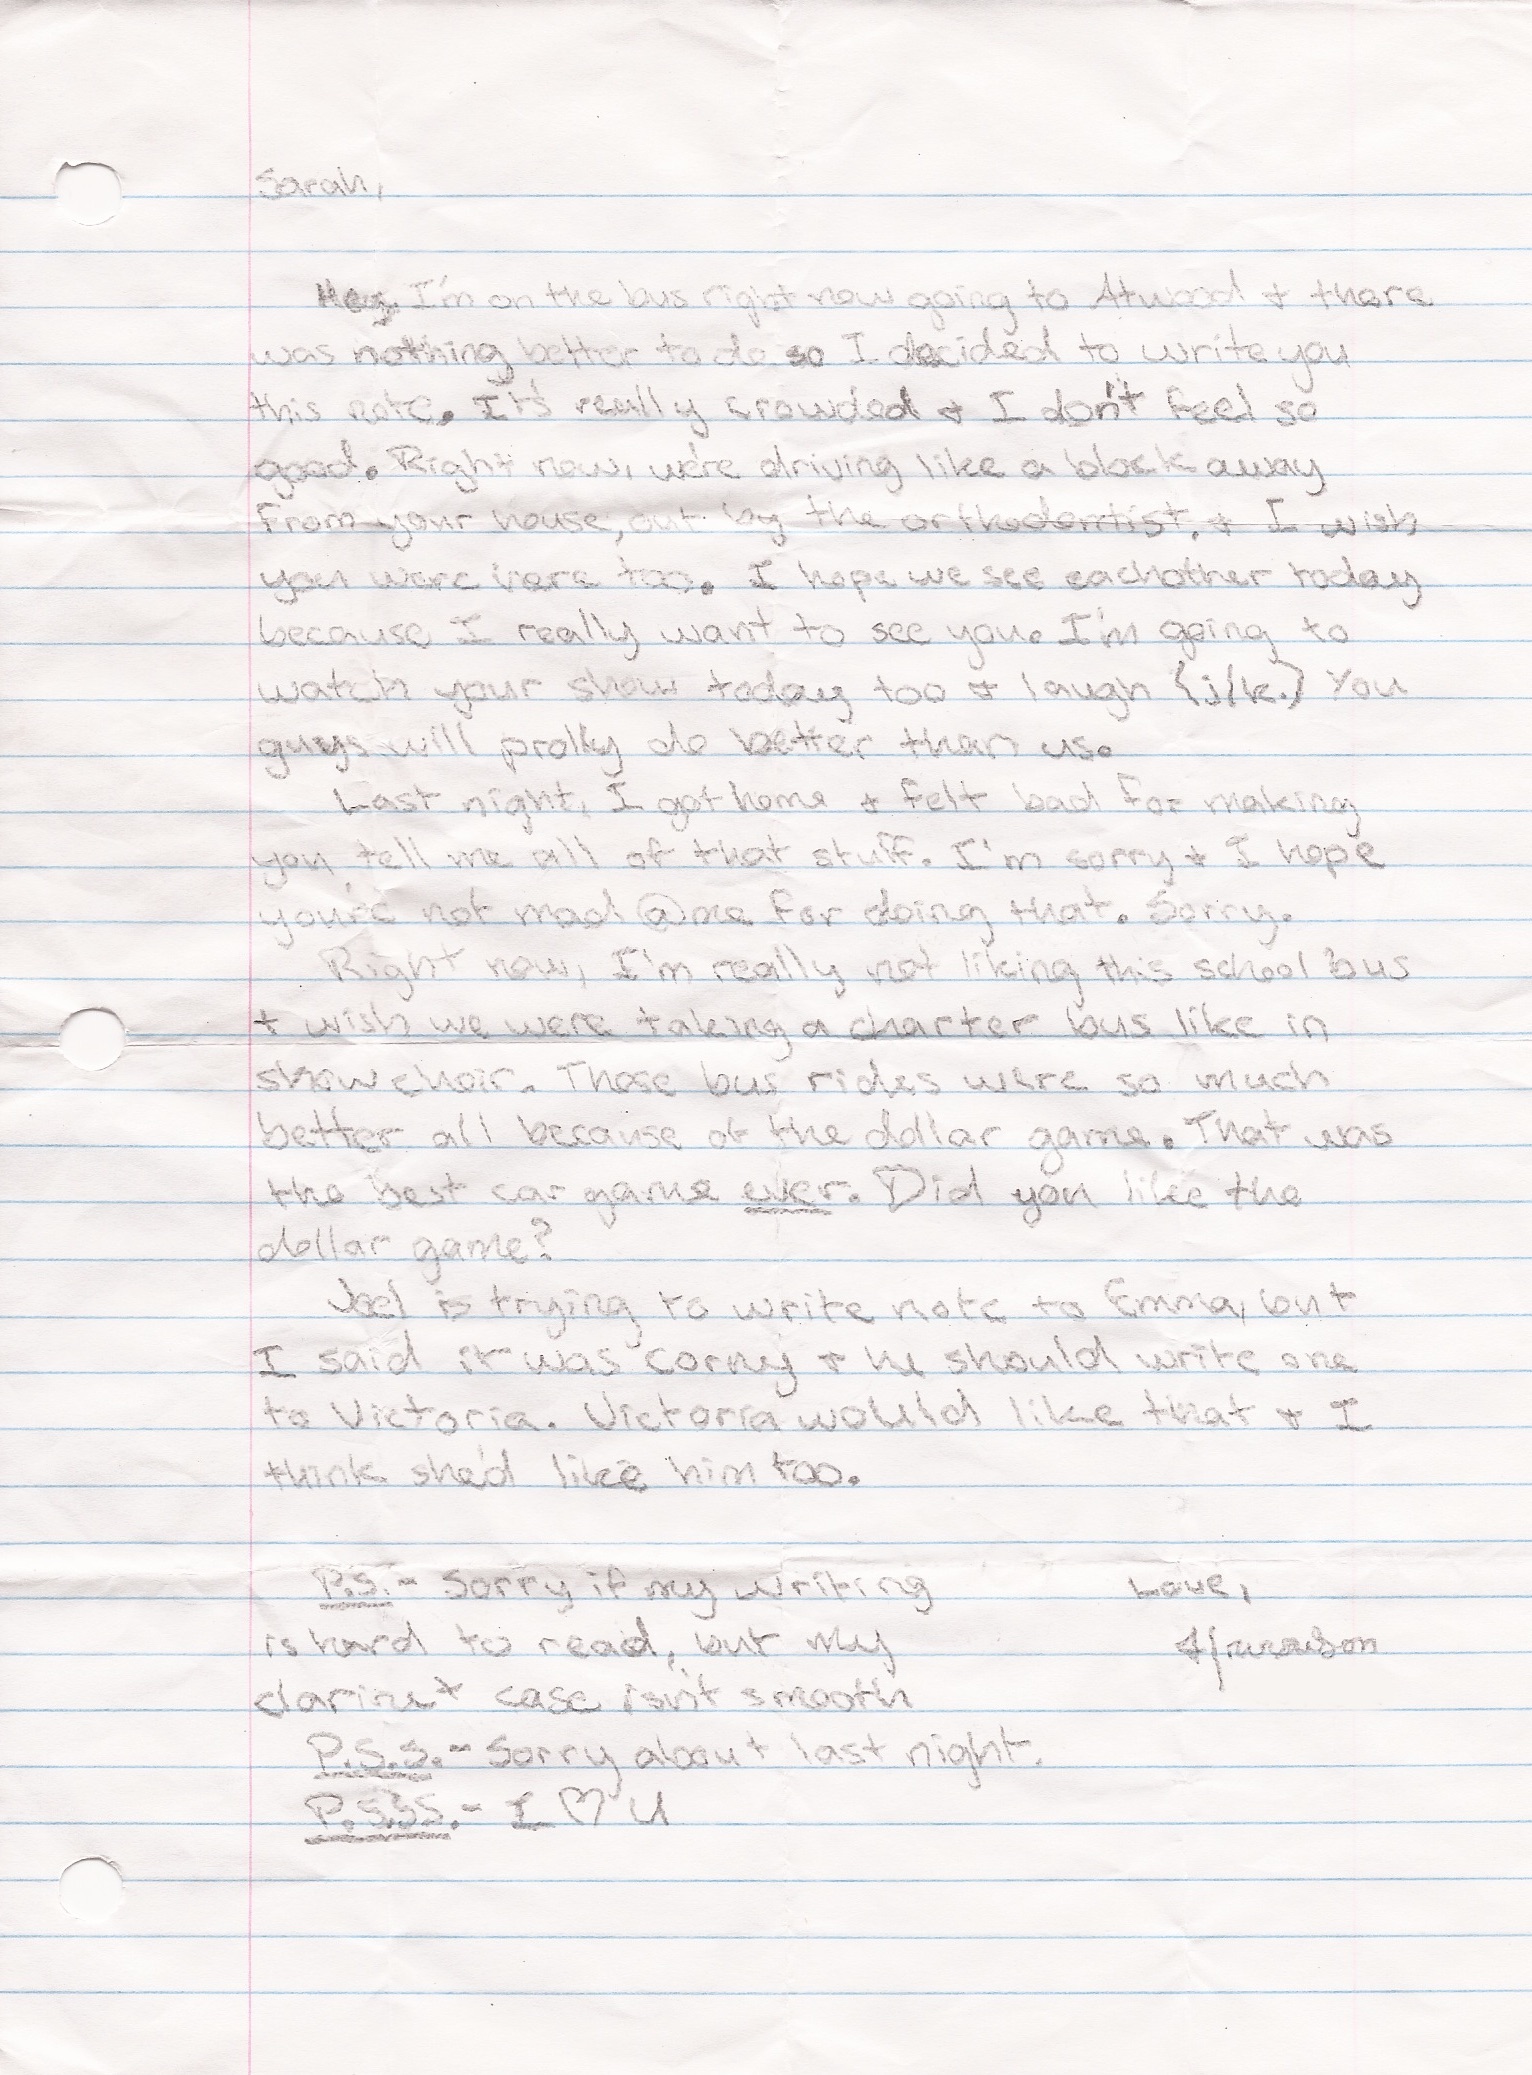 Sarah,
Hey. I'm on the bus right now going to Atwood + there
was nothing better to do so I decided to write you
this note. It's really crowded + I don't feel so
good. Right now, we're driving like a block away
from your house, out by the orthodontist, + I wish
you were here too. I hope we see eachother today
because I really want to see you. I'm going to
watch your show today too + laugh {j/k.} You
guys will prolly do better than us.
Last night, I got home + felt bad for making
you tell me all of that stuff. I'm sorry + I hope
you're not mad @ me for doing that. Sorry.
Right now, I'm really not liking this school bus
+ wish we were taking a charter bus like in
show choir. Those bus rides were so much
better all because of the dollar game. That was
the best car game ever. Did you like the
dollar game?
Joel is trying to write note to Emma, but
I said it was corny + he should write one
to Victoria. Victoria would like that + I
think she'd like him too.
P.S.- Sorry if my writing
is hard to read, but my
clarinet case isn't smooth
P.S.S.- Sorry about last night.
P.S.S.S.- I ♡ U
Love,